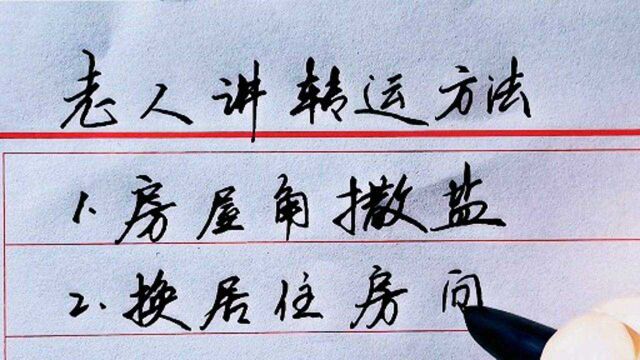 老人讲转运方法
1.房屋角撒盐
2.换居住房间